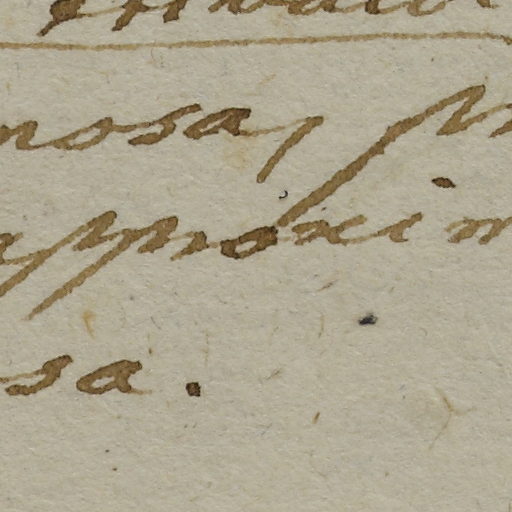 nosa, pr
approxim
sa.